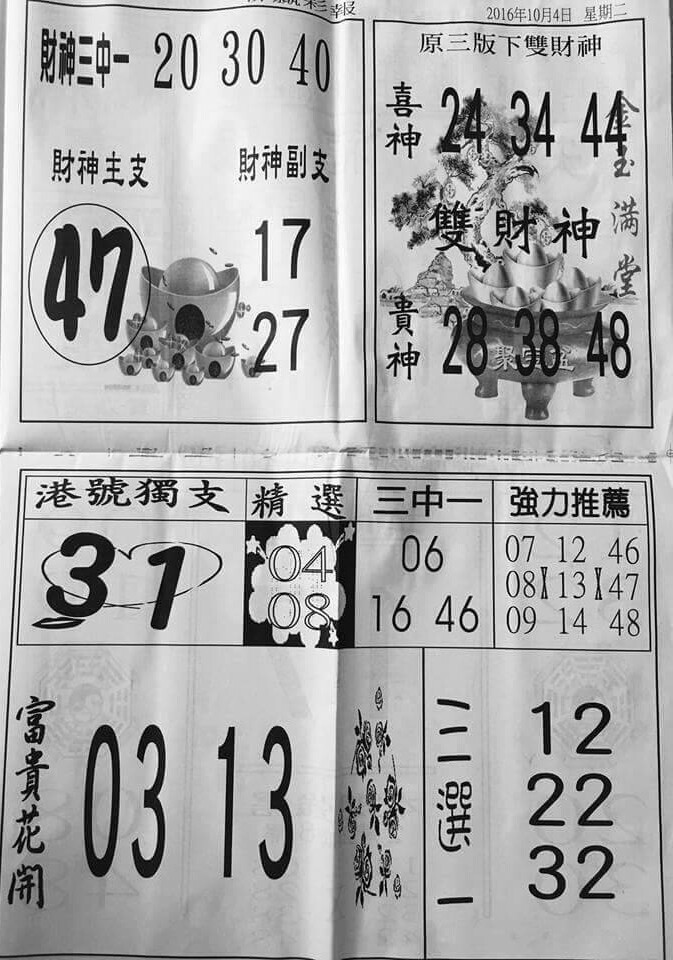 報
2016年10月4日 星期二
財神三中一 20 30 40
財神主支
財神副支
47
17
27
原三版下雙財神
喜神 24 34 44
金玉滿堂
雙財神
貴神 28 38 48
聚寶盆
港號獨支
31
精選
04
08
三中一
06
16 46
強力推薦
07 12 46
08 13 47
09 14 48
富貴花開
03 13
三選一
12
22
32